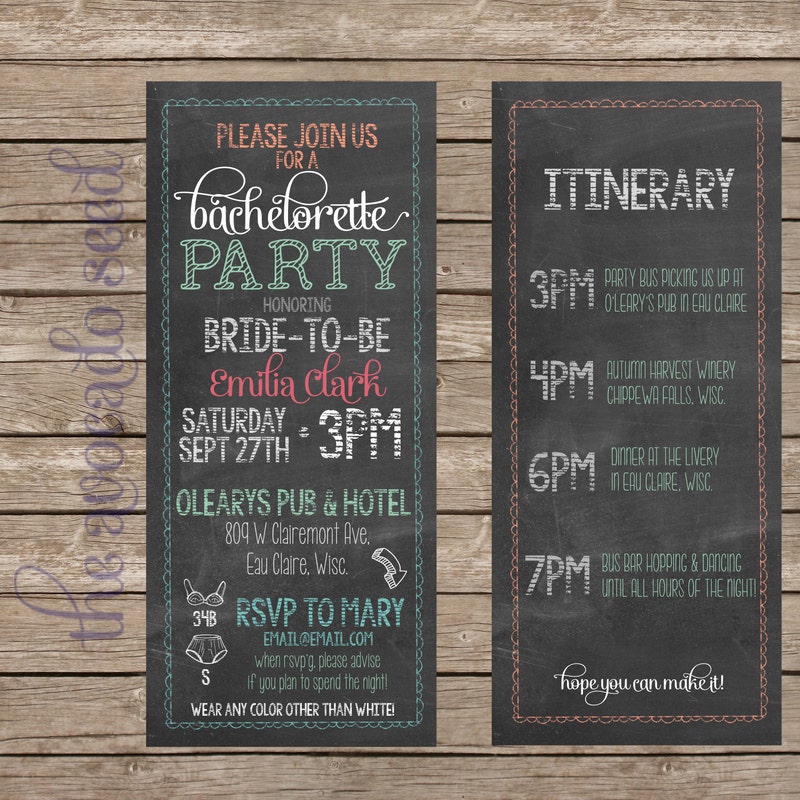 the avocado seed
PLEASE JOIN US
FOR A
bachelorette
PARTY
HONORING
BRIDE-TO-BE
Emilia Clark
SATURDAY
SEPT 27TH • 3PM
OLEARYS PUB & HOTEL
809 W Clairemont Ave,
Eau Claire, Wisc.
34B
S
RSVP TO MARY
EMAIL@EMAIL.COM
when rsvp'g, please advise
if you plan to spend the night!
WEAR ANY COLOR OTHER THAN WHITE!
ITINERARY
3PM PARTY BUS PICKING US UP AT
O'LEARY'S PUB IN EAU CLAIRE
4PM AUTUMN HARVEST WINERY
CHIPPEWA FALLS, WISC.
6PM DINNER AT THE LIVERY
IN EAU CLAIRE, WISC.
7PM BUS BAR HOPPING & DANCING
UNTIL ALL HOURS OF THE NIGHT!
hope you can make it!